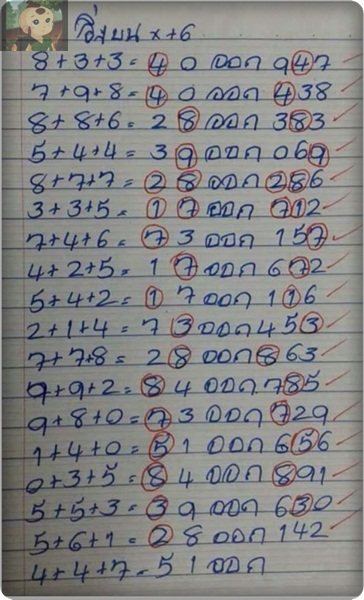 วิ่งบน x+6
8+3+3= 40 ออก 947
7+9+8= 40 ออก 438
8+8+6= 28 ออก 383
5+4+4= 39 ออก 069
8+7+7= 28 ออก 286
3+3+5= 17 ออก 712
7+4+6= 73 ออก 157
4+2+5= 17 ออก 672
5+4+2= 17 ออก 116
2+1+4= 73 ออก 453
7+7+8= 28 ออก 863
9+9+2= 84 ออก 785
9+8+0= 73 ออก 729
1+4+0= 51 ออก 656
0+3+5= 84 ออก 891
5+5+3= 39 ออก 630
5+6+1= 28 ออก 142
4+4+7= 51 ออก